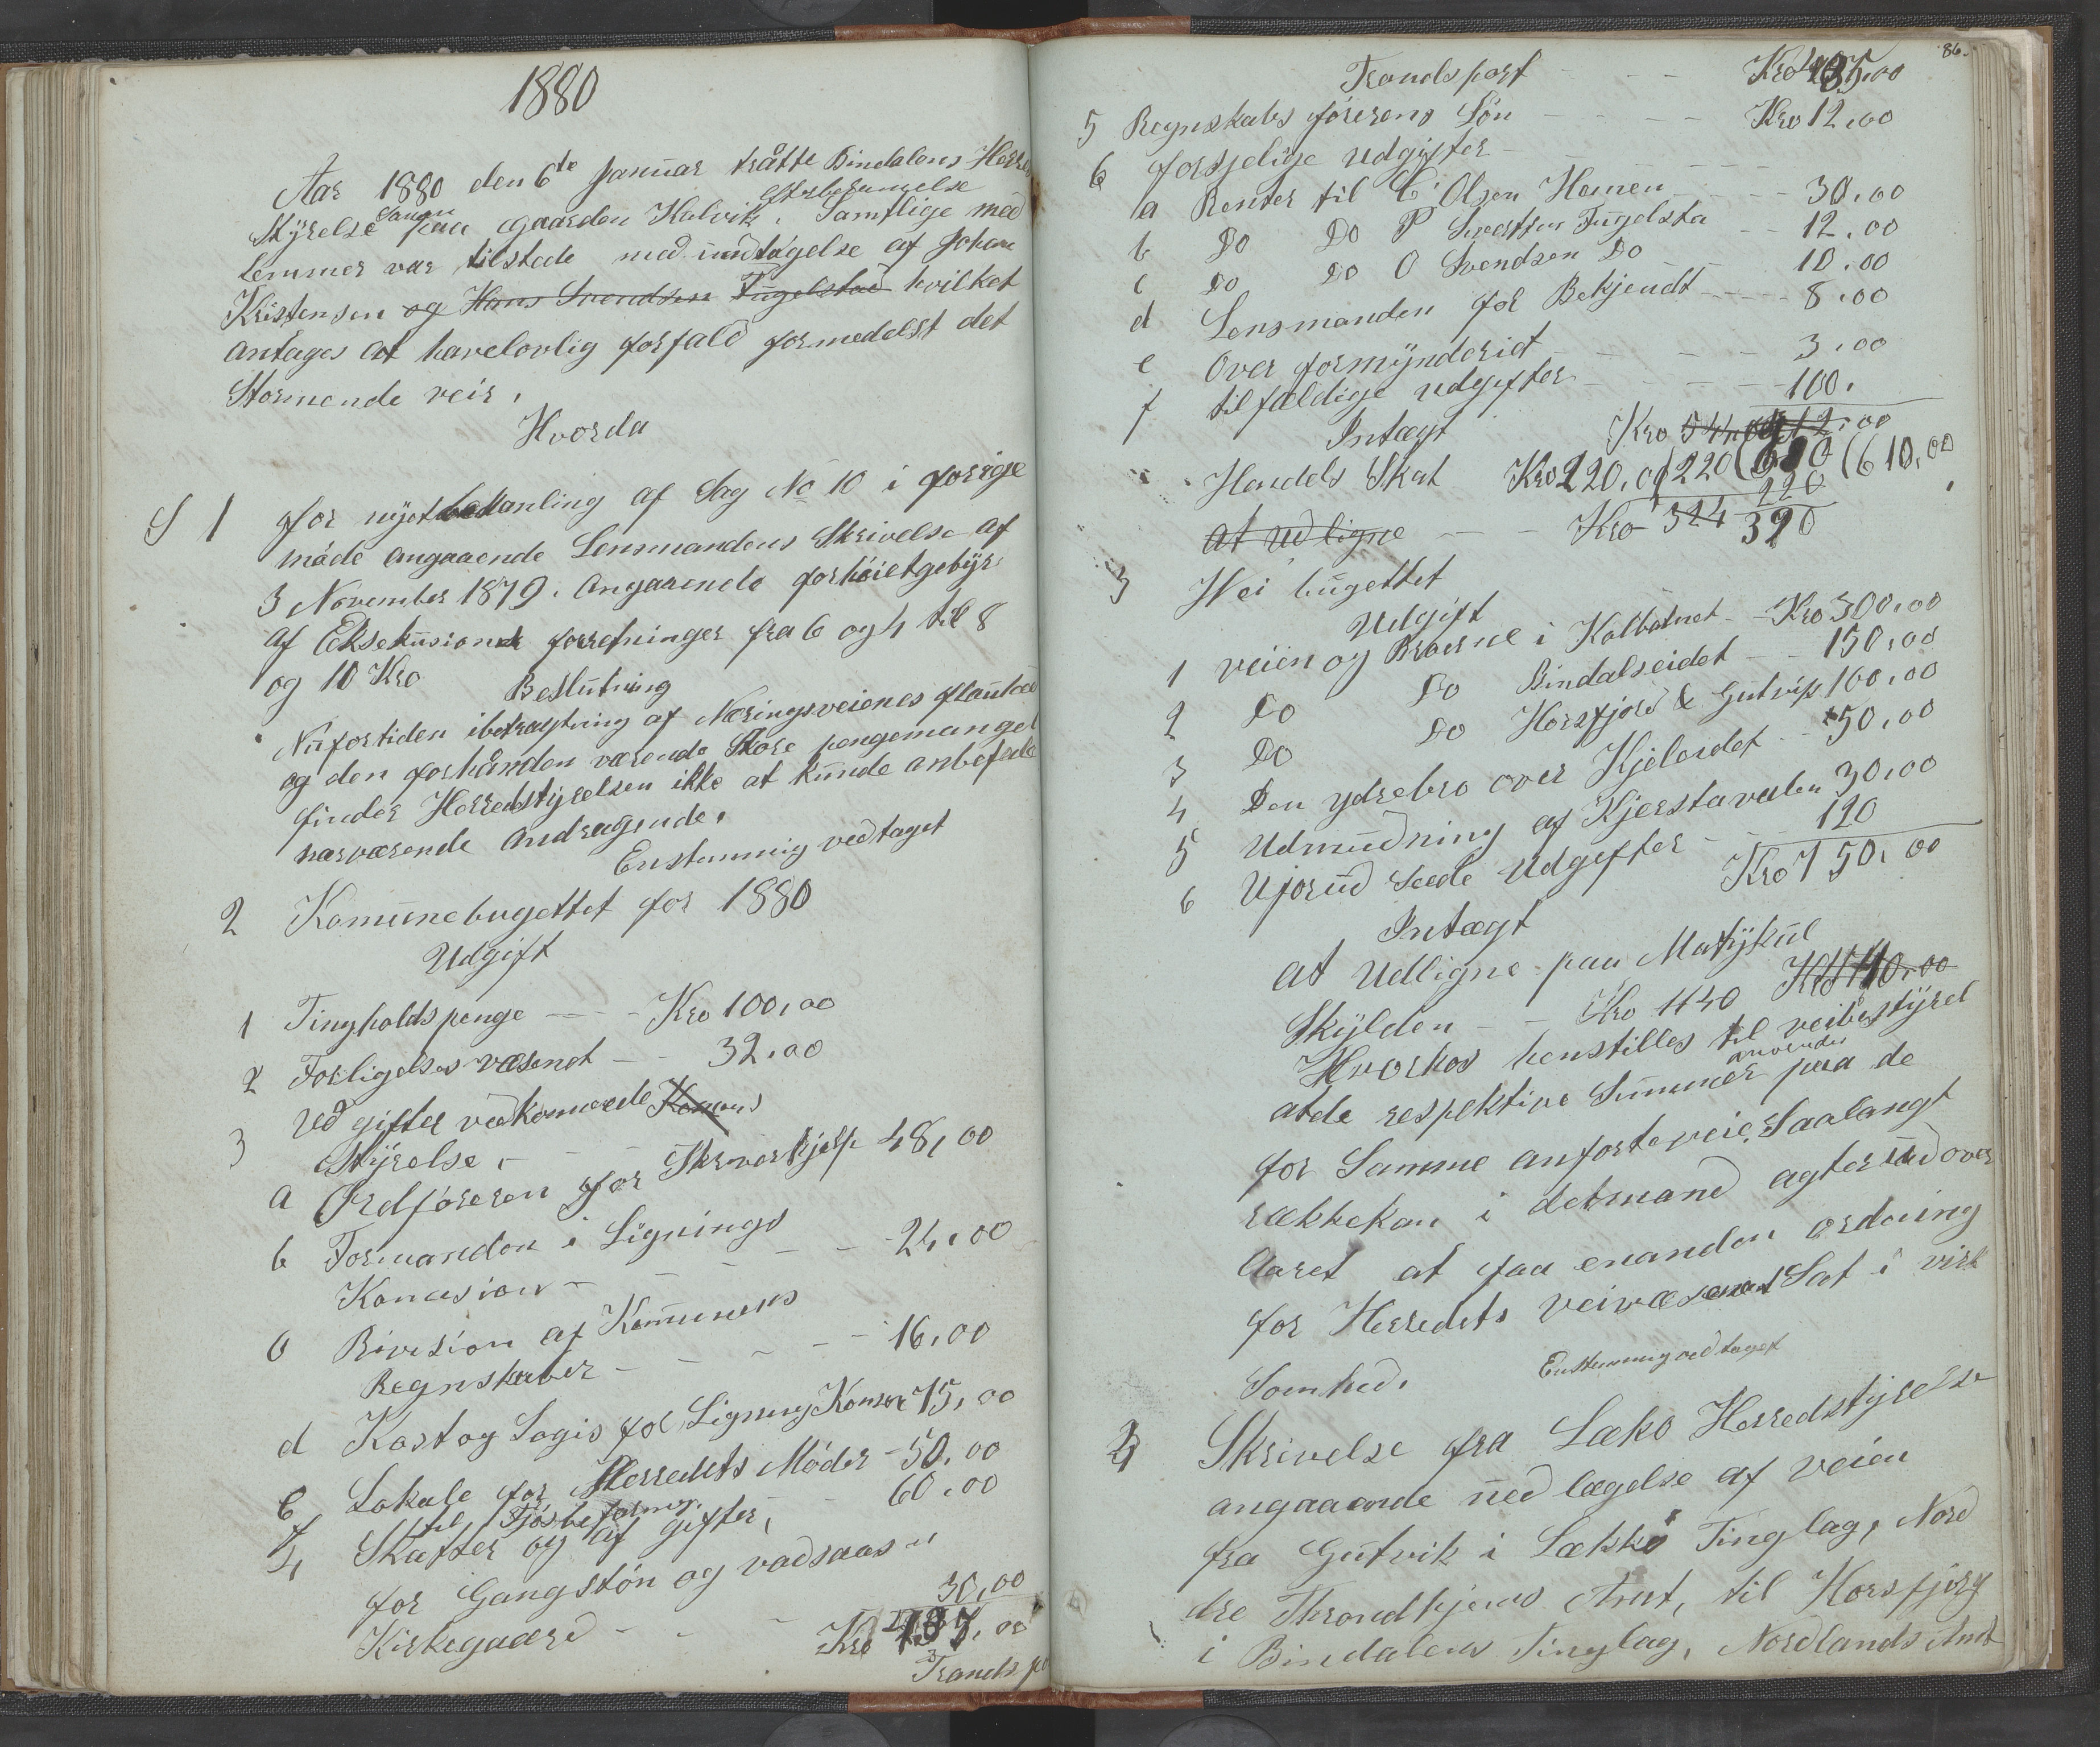 1880
Aar 1880 den 6te Januar tråtte Bindalens Herreds
efterberamelse
Styrelse Sammen paa gaarden Kalvik. Samtlige med
lemmer var tilstede med undtagelse af Johan
Kristensen og Hans Svendsen Fugelstad hvilket
antages at havelovlig forfald formedelst det
Stormende veir.
Hvorda
S 1 for nyet behanling af Sag No 10 i forrige
måde angaaende Lensmandens Skrivelse af
3 November 1879. Angaaende forhöietgebyr
af Eksekusions forretninger fra 6 og 4 til 8
og 10 Kro
Beslutning
Nufortiden ibetragtning af Næringsveienes
og den forhånden værende Store pengemangel
finder Herredstyrelsen ikke at kunde anbefale
nærværende Andragende.
Enstemmig vedtaget
2 Komunebugettet for 1880
Udgift
1 Tingholdspenge - - - Kro 100,00
2 Forligelses væsenet - - 32.00
3 Ud gifter vedkomende Komuns
Styrelse. - -
a Ordföreren for Skriverhjælp 48,00
b Formanden i Lignings
Komusion - - - - 24,00
c Rivision af Komunens
Regnskaber - - - - 16,00
d Kost og Logis for Ligning Komsn 75,00
e Lokale for Herredets Möder - 50,00
f til Tjosbefaring. - 60.00
4 Skatter og af gifter,
for Gangstön og vadsaas
Kirkegaard - - - 30,00
Kro 437,00
Transp
86.
Trandsport - - - Kro 435.00
5 Regnskabs förerens Lön - - - - Kro 12,00
6 forsjelige udgifter - - - - -
a Renter til C Olsen Hornen - - - 30.00
b Do Do P Sivertsen Fugelsta - - 12.00
c Do Do O Svendsen Do - - 10.00
d Lensmanden for Bekjendt - - - 8.00
e Over formynderiet - - - - 3.00
f tilfældige udgifter - - - - - 100.
Intægt Kro 544,00 612.00
Handels Skat Kro 220,00 220 (610 (610,00
220
at udligne - - - Kro 324 390
3 Vei bugettet
Udgift
1 veien og Broerne i Kalbotnet - Kro 300,00
2 Do Do Bindalseidet - - 150,00
3 Do Do Horsfjord & Gutvik 100,00
4 Den ydrebro over Kjeleidet - - 50,00
5 Udmudning af Kjerstavalen 30,00
6 Uforud Seede Udgifter - - 120
Kro 750,00
Intægt
at Udligne paa Matrykul
Skylden - - Kro 1140 Kro 1140.00
Hvorhos henstilles til veibestyrel
anvendes
atde respektive Summer paa de
for Samme anforteveie Saalangt
rækkekan i detmand agter ud over
Aaret at faa enanden ordning
for Herredets Veivæsenet Sat i virk
Somhed.
Enstemmig vedtaget
4 Skrivelse fra Leko Herredstyrelse
angaaende ned lægelse af veien
fra Gutvik i Lekkö Tinglag, Nord
dre Throndhjems Amt, til Horsfjord
i Bindalens Tinglag, Nordlands Amt